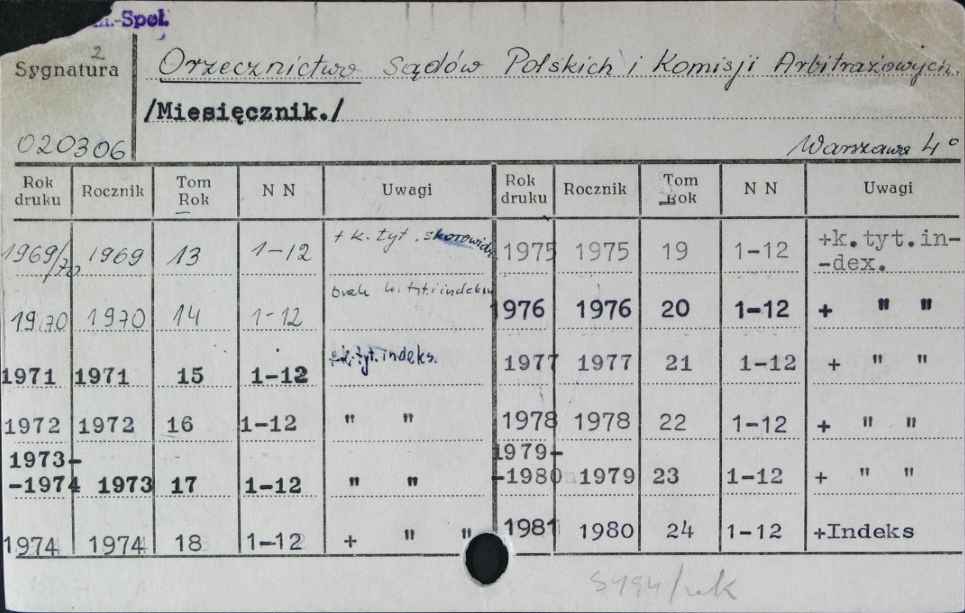 -Społ.
2
Sygnatura
Orzecznictwo Sądów Polskich i Komisji Arbitrażowych.
/Miesięcznik./
020306
Warszawa 4°
Rok druku Rocznik Tom Rok N N Uwagi
1969/70 1969 13 1-12 + k. tyt. skorowidz
1970 1970 14 1-12 brak k. tyt. i indeksu
1971 1971 15 1-12 +k. tyt. indeks.
1972 1972 16 1-12 " "
1973-
-1974 1973 17 1-12 " "
1974 1974 18 1-12 + " "
Rok druku Rocznik Tom Rok N N Uwagi
1975 1975 19 1-12 +k.tyt.in-
-dex.
1976 1976 20 1-12 + " "
1977 1977 21 1-12 + " "
1978 1978 22 1-12 + " "
1979-
-1980 1979 23 1-12 + " "
1981 1980 24 1-12 +Indeks